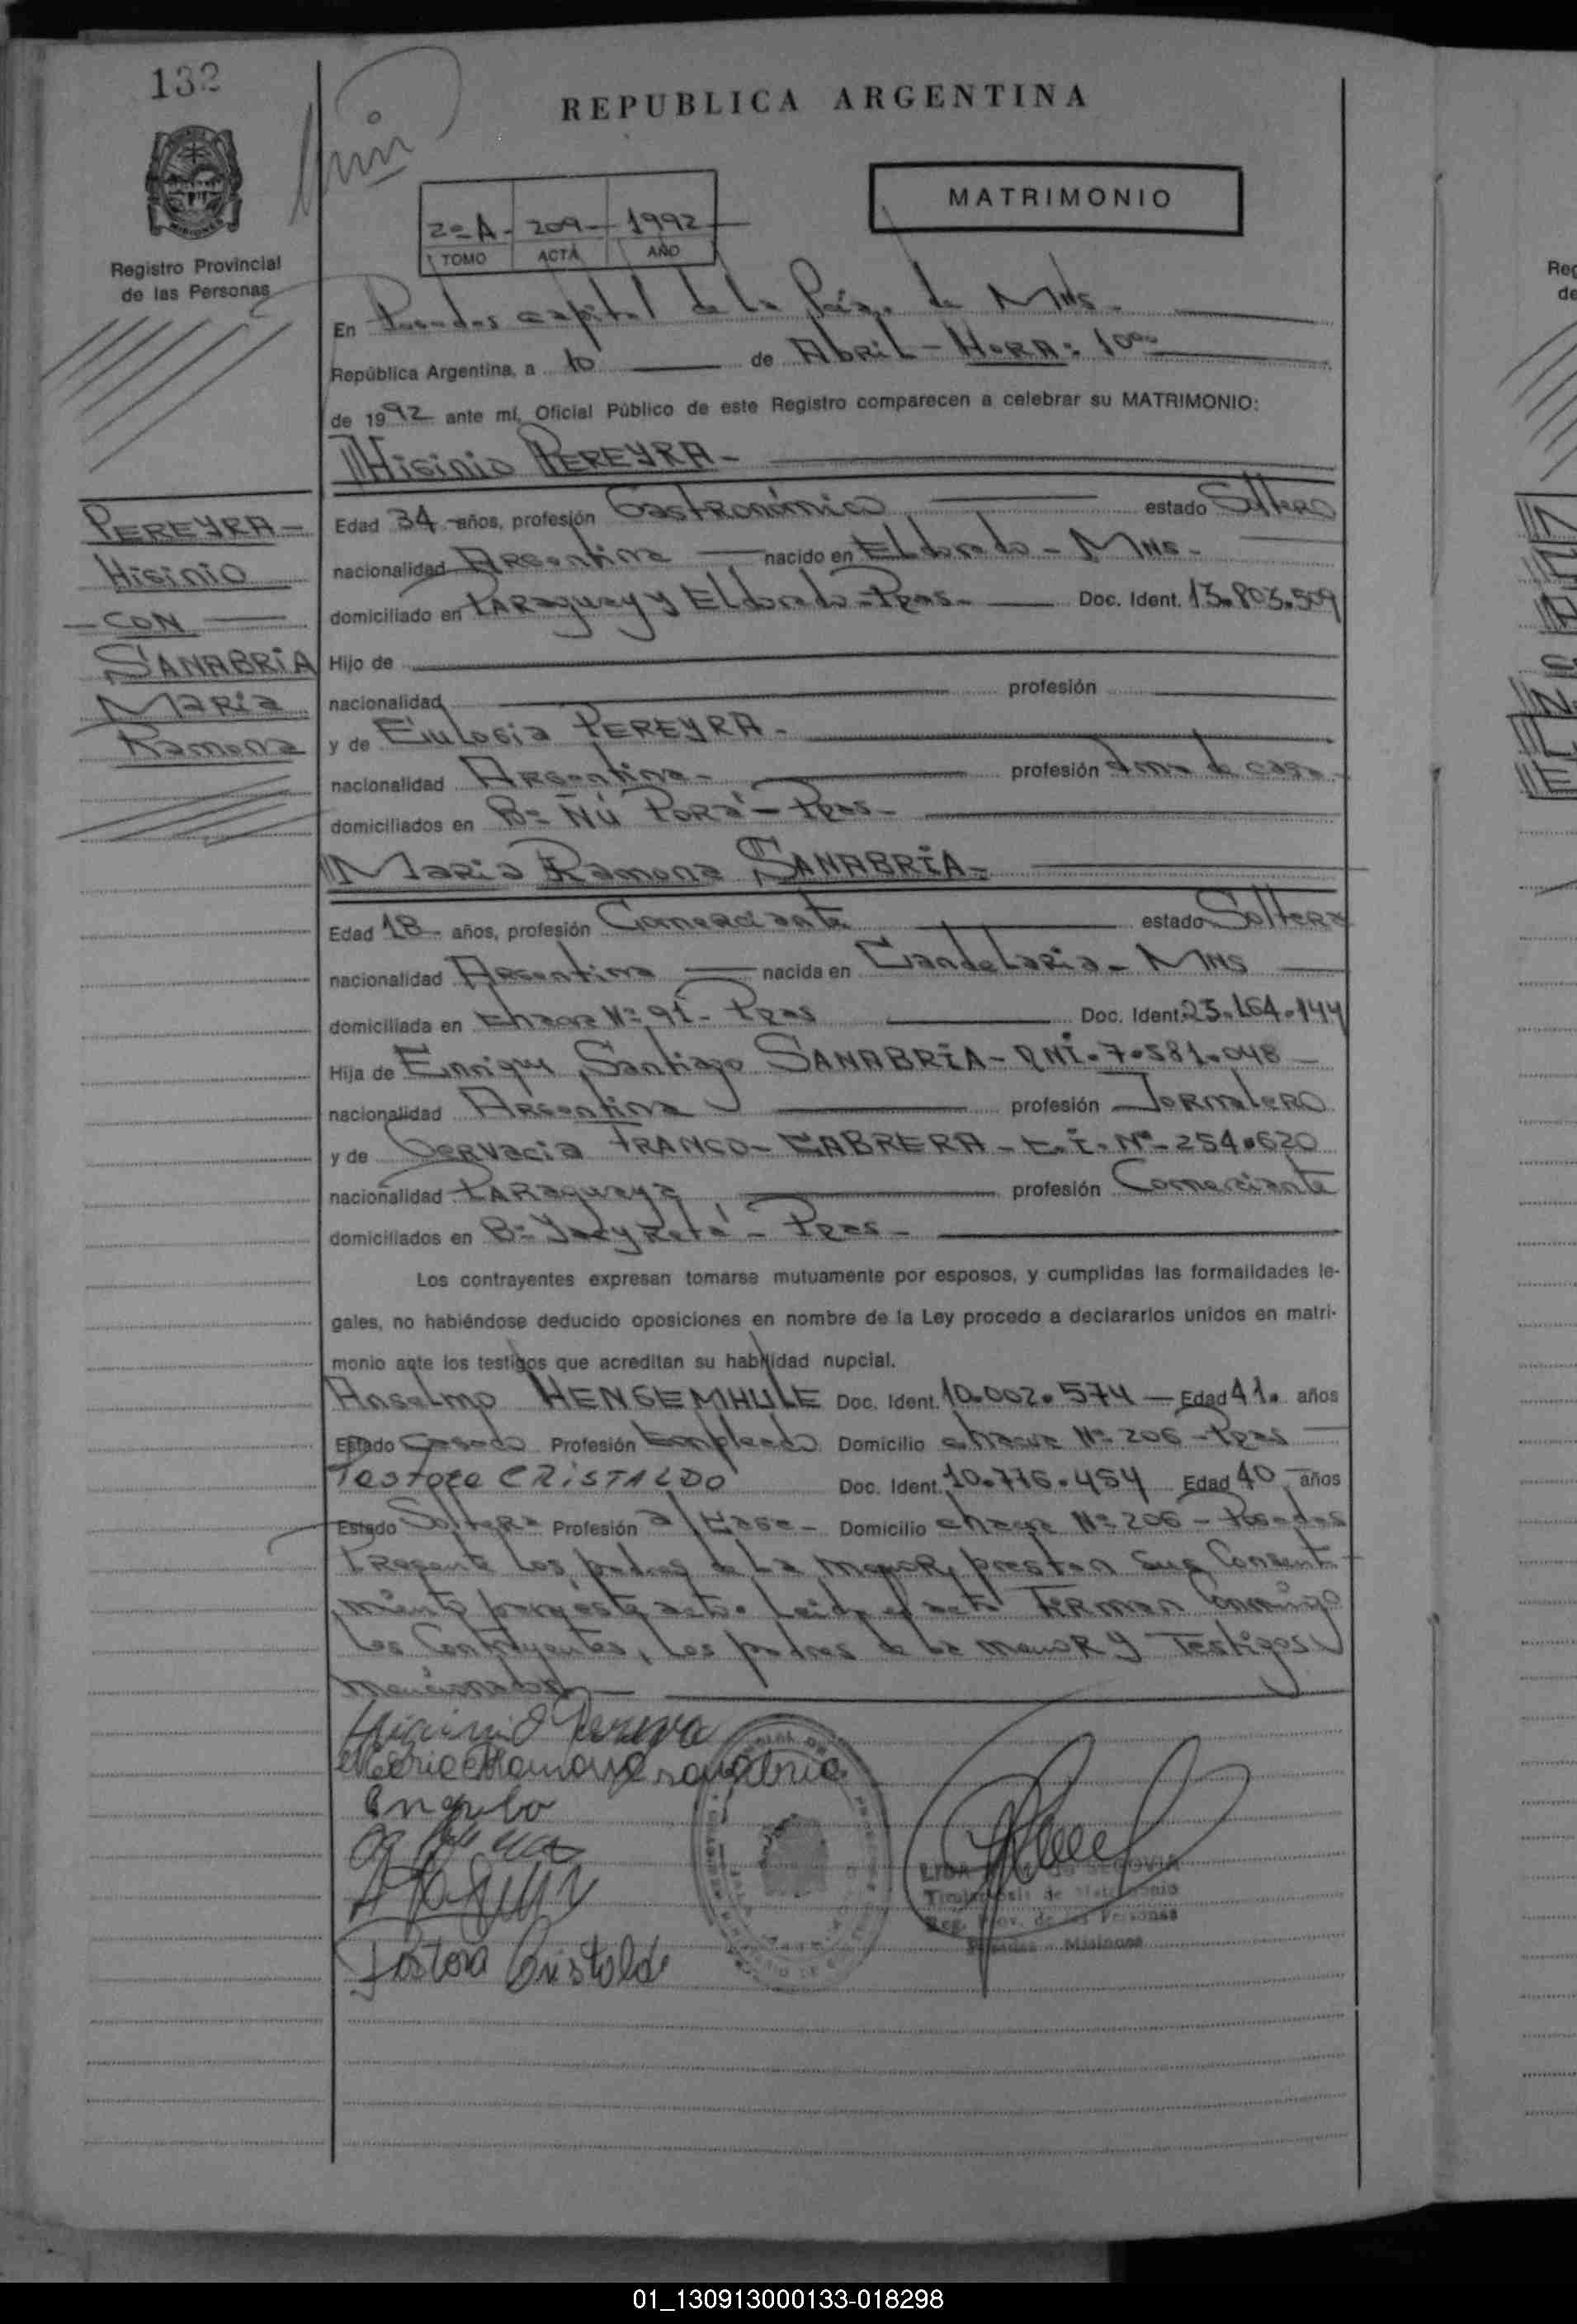 132
REPUBLICA ARGENTINA
MATRIMONIO
2º A - 209 - 1992
TOMO ACTA AÑO
Registro Provincial
de las Personas
En Posadas capital de la Pcia. de Mns -
República Argentina, a 10 de Abril - HORA: 10
de 1992 ante mí, Oficial Público de este Registro comparecen a celebrar su MATRIMONIO:
Higinio PEREYRA -
PEREYRA -
Higinio
- CON -
SANABRIA
Maria
Ramona
Edad 34 - años, profesión Gastronómico estado Soltero
nacionalidad Argentina nacido en Eldorado - Mns -
domiciliado en Paraguay y Eldorado - Pdas - Doc. Ident. 13.803.509
Hijo de
nacionalidad profesión
y de Eulogia PEREYRA -
nacionalidad Argentina - profesión Ama de casa -
domiciliados en Bº Ñú Porá - Pdas -
Maria Ramona SANABRIA -
Edad 18 - años, profesión Comerciante estado Soltera
nacionalidad Argentina nacida en Candelaria - Mns
domiciliada en Chacra Nº 91 - Pdas Doc. Ident. 23.164.144
Hija de Enrique Santiago SANABRIA - DNI. 7.581.048 -
nacionalidad Argentina profesión Jornalero
y de Gervacia FRANCO - CABRERA - C.I. Nº - 254.620
nacionalidad Paraguaya profesión Comerciante
domiciliados en Bº Yacyretá - Pdas -
Los contrayentes expresan tomarse mutuamente por esposos, y cumplidas las formalidades le-
gales, no habiéndose deducido oposiciones en nombre de la Ley procedo a declararlos unidos en matri-
monio ante los testigos que acreditan su habilidad nupcial.
Anselmo HENGEMHULE Doc. Ident. 10.002.574 - Edad 41. años
Estado Casado Profesión Empleado Domicilio Chacra Nº 206 - Pdas
Pastora CRISTALDO Doc. Ident. 10.776.454 Edad 40 años
Estado Soltera Profesión a/ casa - Domicilio chacra Nº 206 - Posadas
Presente los padres de la menor, prestan sus Consenti-
miento para este acto. Leida el acta Firman Conmigo
los Contrayentes, los padres de la menor y Testigos
mencionados -
Higinio Pereyra
Maria Ramona sanabria
Pastora Cristaldo
SEGOVIA
Reg. Prov. de las Personas
Posadas - Misiones
Reg
de
01_130913000133-018298